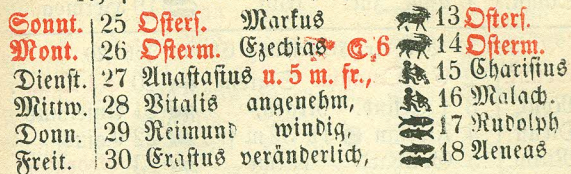 Sonnt. 25 Osters. Markus 13 Osters.
Mont. 26 Osterm. Ezechias 6 14 Osterm.
Dienst. 27 Anastasius u. 5 m. fr., 15 Charisius
Mittw. 28 Vitalis angenehm, 16 Malach.
Donn. 29 Reimund windig, 17 Rudolph
Freit. 30 Erastus veränderlich, 18 Aeneas